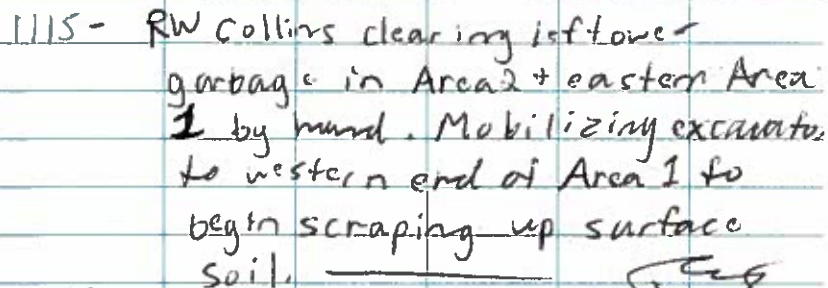 1115- RW Collins clearing leftover
garbage in Area 2 + eastern Area
1 by hand. Mobilizing excavator
to western end of Area 1 to
begin scraping up surface
soil.